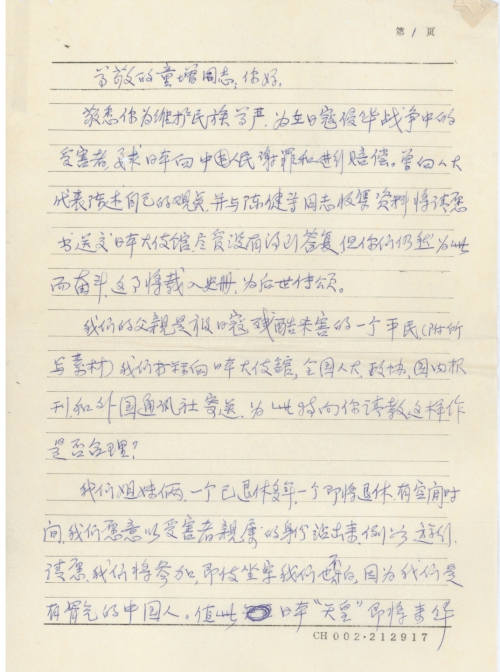 第1页
尊敬的童增同志:你好。
获悉你为维护民族尊严,为在日寇侵华战争中的
受害者,要求日本向中国人民谢罪和进行赔偿。曾向人大
代表陈述自己的观点,并与陈健等同志收集资料将请愿
书送交日本大使馆,尽管没有得到答复,但你们仍然为此
而奋斗,这了将载入史册,为后世传颂。
我们的父亲是被日寇残酷杀害的一个平民(附所
写素材)我们打算向日本大使馆,全国人大、政协,国内报
刊,和外国通讯社寄送,为此特向你请教,这样作
是否合理?
我们姐妹俩,一个已退休多年,一个即将退休,有空闲时
间,我们愿意以受害者亲属的身份站出来,例如游行、
请愿,我们将参加,即使坐牢我们也愿,因为我们是
有骨气的中国人。值此日本“天皇”即将来华
CH 002·212917